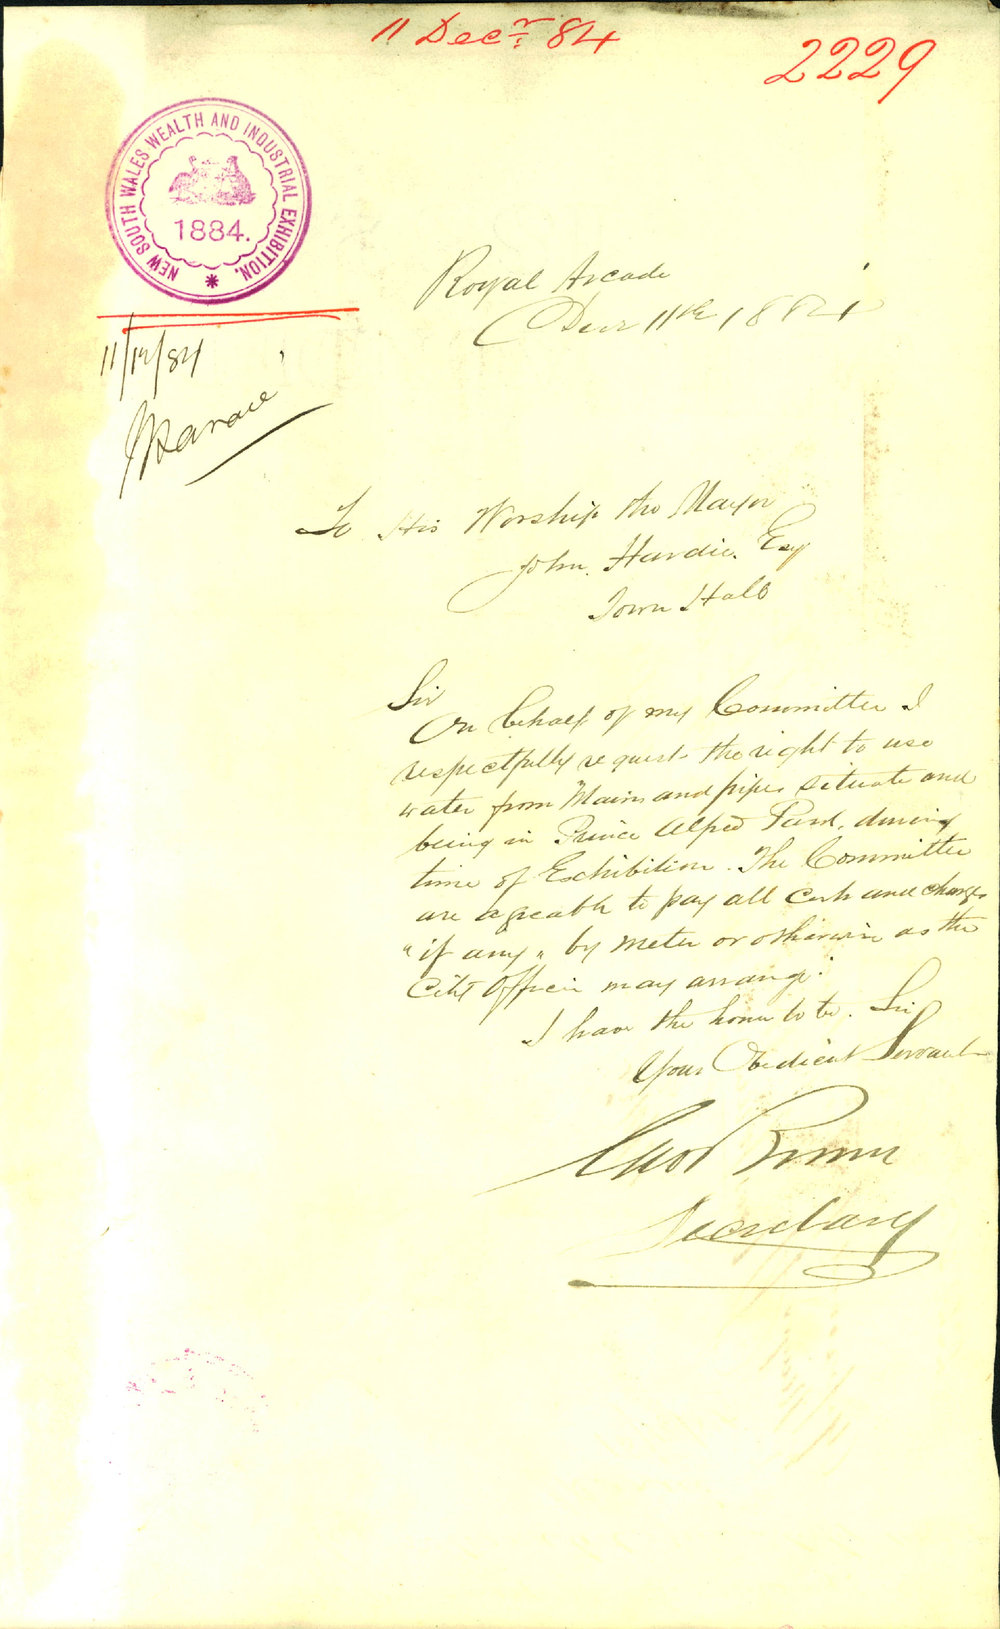 11 Decr. 84
2229
NEW SOUTH WALES WEALTH AND INDUSTRIAL EXHIBITION.
1884.
Royal Arcade
Decr 11th 1884
11/12/84
To His Worship the Mayor
John. Hardie. Esq
Town Hall
Sir
On behalf of my Committee I
respectfully request the right to use
water from Mains and pipes situate and
being in Prince Alfred Park, during
time of Exhibition. The Committee
are agreable to pay all costs and charges
"if any" by meter or otherwise as the
City Officer may arrange.
I have the honor to be. Sir
Your Obedient Servant
Secretary